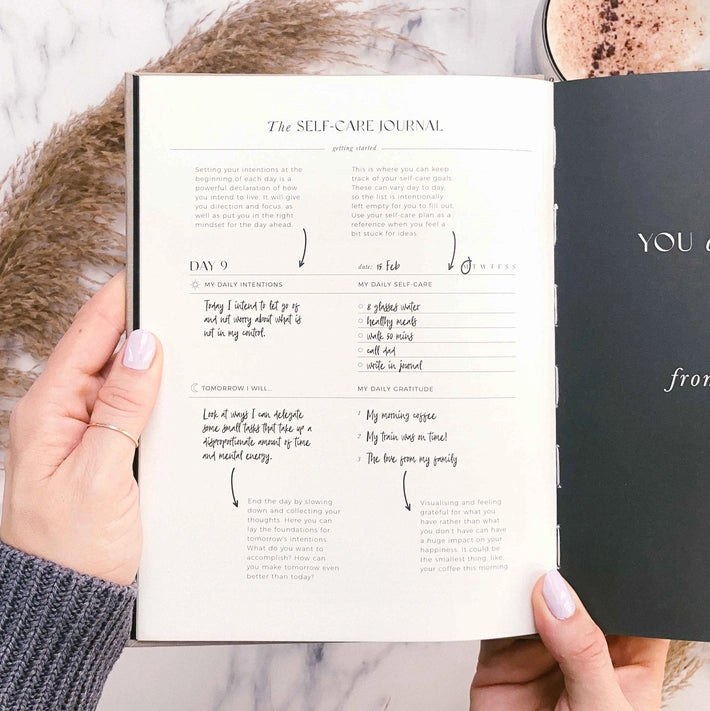 The SELF-CARE JOURNAL
getting started
Setting your intentions at the
beginning of each day is a
powerful declaration of how
you intend to live. It will give
you direction and focus, as
well as put you in the right
mindset for the day ahead.
This is where you can keep
track of your self-care goals.
These can vary day to day,
so the list is intentionally
left empty for you to fill out.
Use your self-care plan as a
reference when you feel a
bit stuck for ideas.
DAY 9
date: 15 Feb
M T W T F S S
MY DAILY INTENTIONS
Today I intend to let go of
and not worry about what is
not in my control.
MY DAILY SELF-CARE
8 glasses water
healthy meals
walk 30 mins
call dad
write in journal
TOMORROW I WILL...
Look at ways I can delegate
some small tasks that take up a
disproportionate amount of time
and mental energy.
MY DAILY GRATITUDE
1 My morning coffee
2 My train was on time!
3 The love from my family
End the day by slowing
down and collecting your
thoughts. Here you can
lay the foundations for
tomorrow's intentions.
What do you want to
accomplish? How can
you make tomorrow even
better than today?
Visualising and feeling
grateful for what you
have rather than what
you don't have can have
a huge impact on your
happiness. It could be
the smallest thing, like
your coffee this morning.
YOU